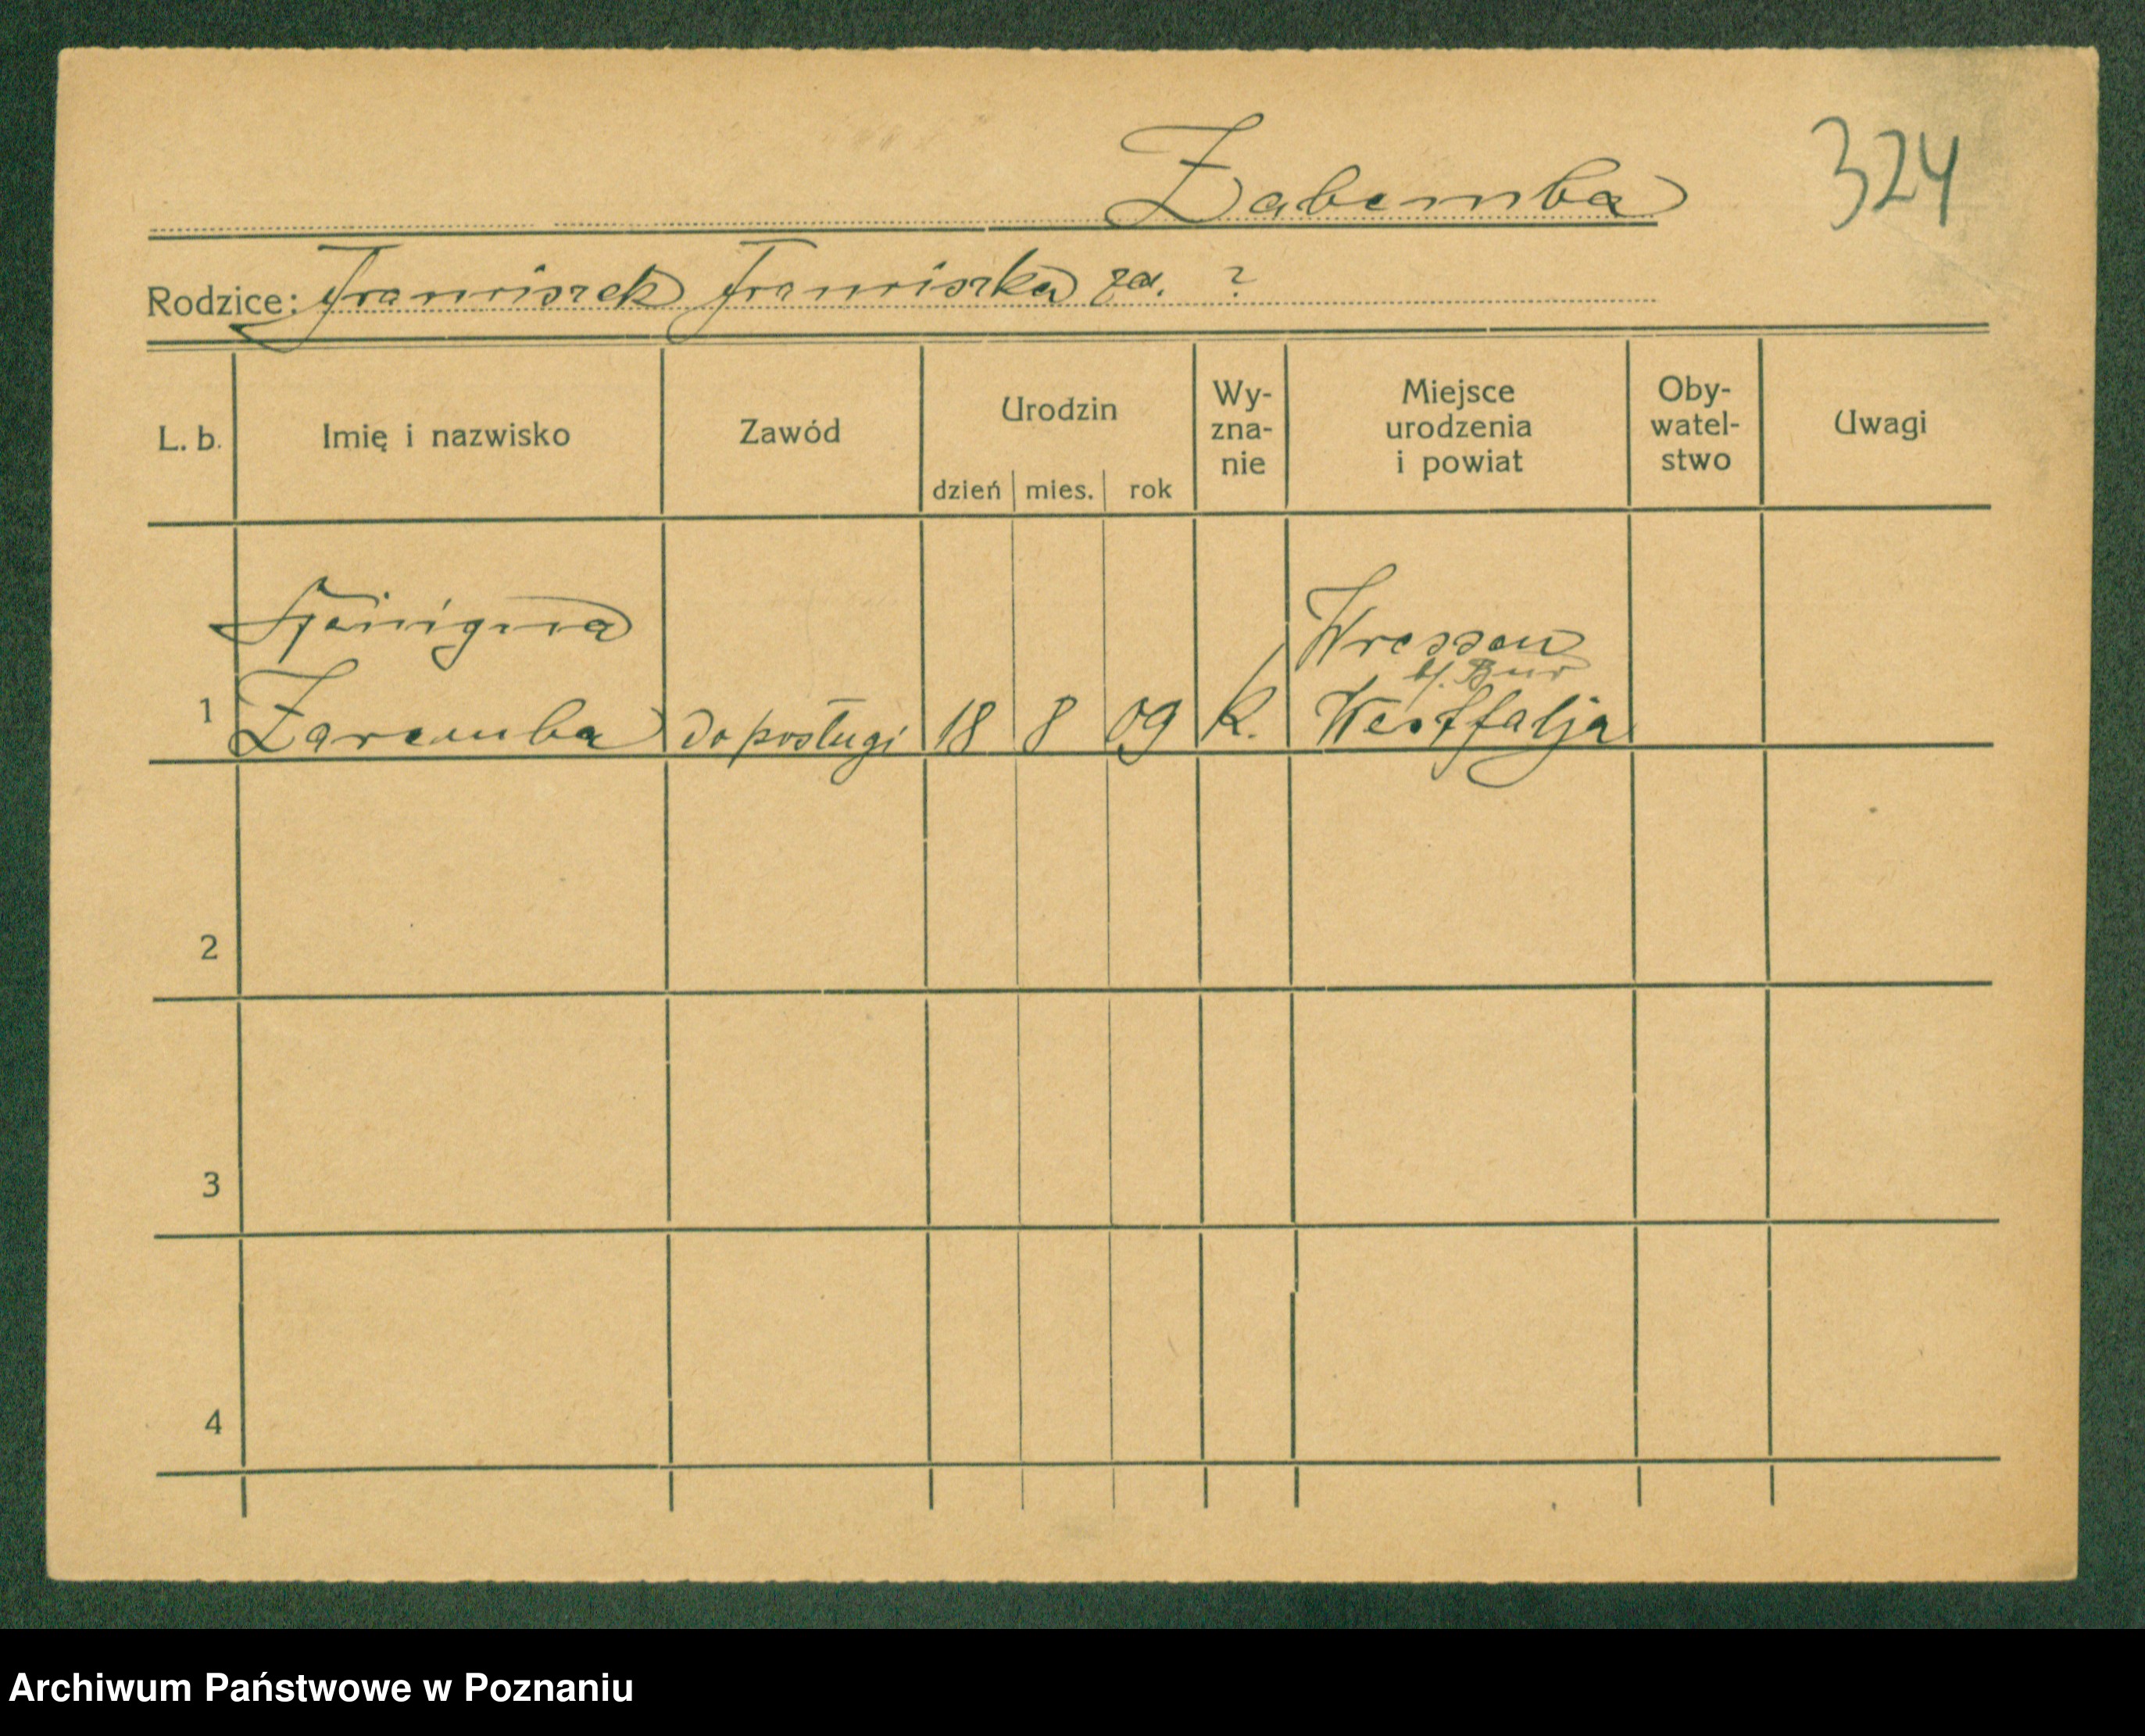 324
Zabemba
Rodzice: Franciszek Franciszka zd. ?
L. b. Imię i nazwisko Zawód Urodzin dzień mies. rok Wy-zna-nie Miejsce urodzenia i powiat Oby-watel-stwo Uwagi
Wressen
b/. Bur
1 Zaremba do posługi 18 8 09 k. Westfalja
2
3
4
Archiwum Państwowe w Poznaniu